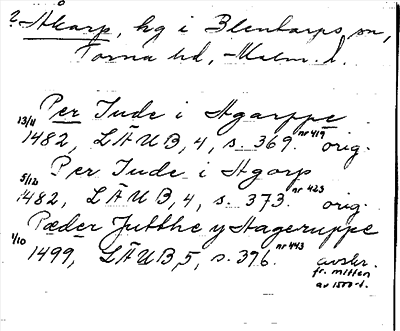 ? Åkarp, hg i Blentarps sn,
Torna hd, -Malm. l.
Per Jude i Agarppe
13/11 1482, LÄUB, 4, s. 369. nr 419 orig.
Per Jude i Agorp
5/12 1482, LÄUB, 4, s. 373. nr 423 orig.
Pæder Jutthe y Hageruppe
1/10 1499, LÄUB, 5, s. 396. nr 443 avskr.
fr. mitten
av 1500-t.